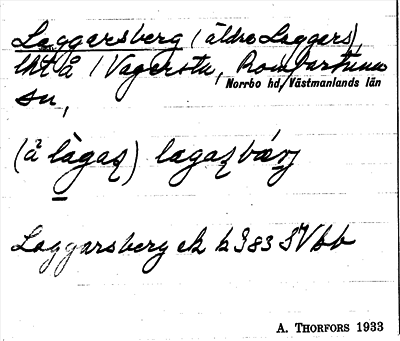 Laggarsberg (äldre Laggers)
lht å / Vagersta, Romfartuna
Norrbo hd, Västmanlands län
sn,
(å làgaʂ) lagaʂbærj
Laggarsberg ek bl 983 SV bb
A. THORFORS 1933